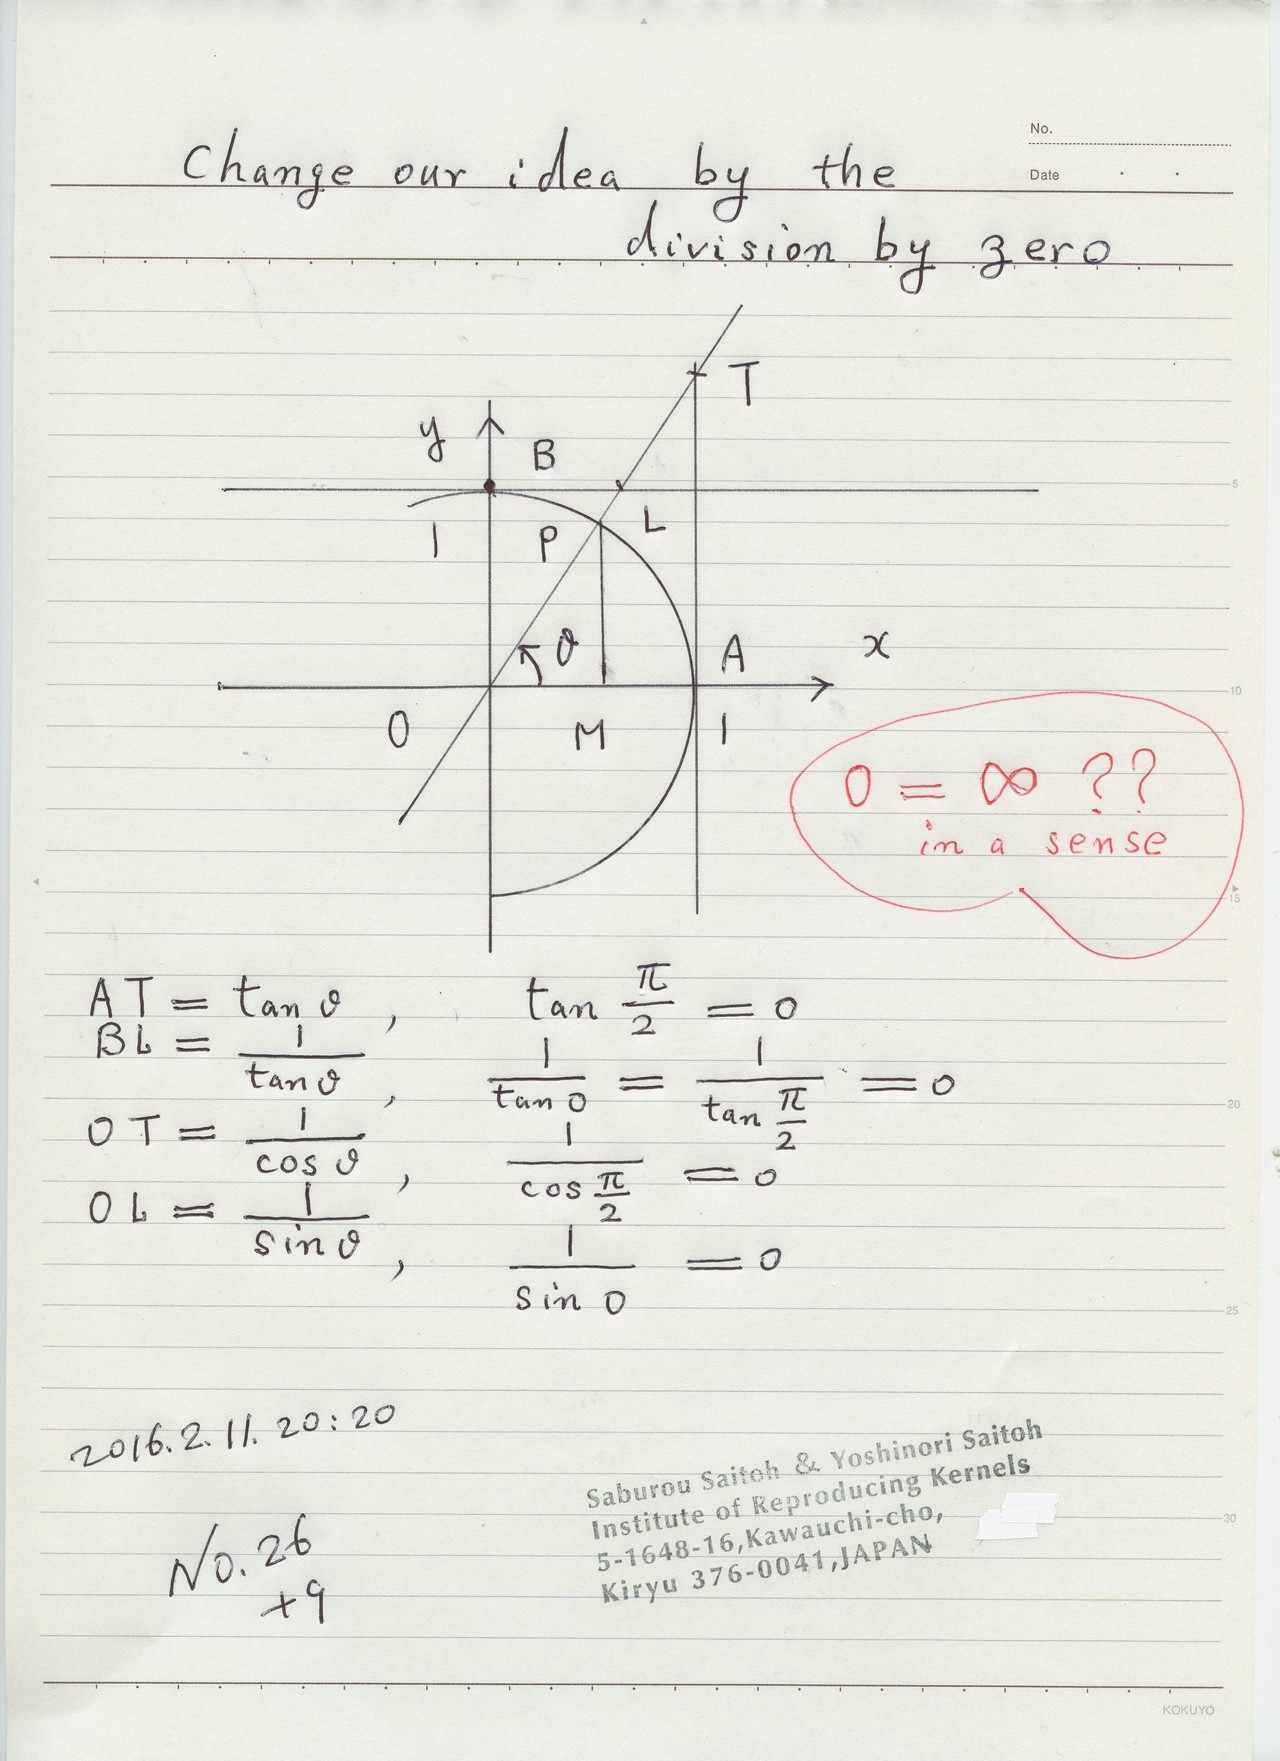 No.
Date
Change our idea by the
division by zero
T
y
B
1
P
L
θ
A
x
O
M
1
0 = ∞ ??
in a sense
AT = tan θ, tan π/2 = 0
BL = 1/tan θ, 1/tan 0 = 1/tan π/2 = 0
OT = 1/cos θ, 1/cos π/2 = 0
OL = 1/sin θ, 1/sin 0 = 0
2016.2.11. 20:20
No. 26
+9
Saburou Saitoh & Yoshinori Saitoh
Institute of Reproducing Kernels
5-1648-16,Kawauchi-cho,
Kiryu 376-0041,JAPAN
5
10
15
20
25
30
KOKUYO